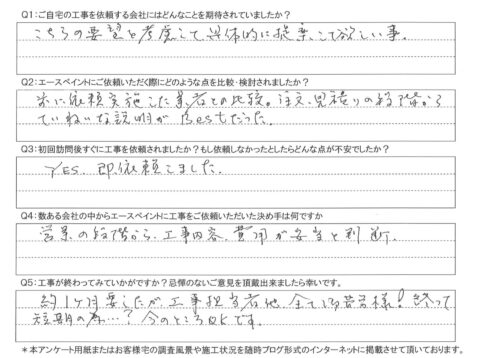 Q1：ご自宅の工事を依頼する会社にはどんなことを期待されていましたか？
こちらの要望を考慮して具体的に提案して欲しい事。
Q2：エースペイントにご依頼いただく際にどのような点を比較・検討されましたか？
に依頼実施した業者との比較。注文、見積りの段階から
ていねいな説明がBestだった。
Q3：初回訪問後すぐに工事を依頼されましたか？もし依頼しなかったとしたらどんな点が不安でしたか？
YES、即依頼しました。
Q4：数ある会社の中からエースペイントに工事をご依頼いただいた決め手は何ですか
営業の段階から、工事内容、費用が妥当と判断。
Q5：工事が終わってみていかがですか？忌憚のないご意見を頂戴出来ましたら幸いです。
約1ヶ月要したが工事担当者他、全て皆様！終って
短期の為…？今のところOKです。
＊本アンケート用紙またはお客様宅の調査風景や施工状況を随時ブログ形式のインターネットに掲載させて頂いております。